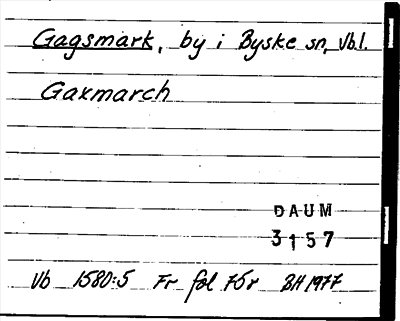 Gagsmark, by i Byske sn, Vbl.
Gaxmarch
DAUM
3157
Vb 1580:5 Fr fol 75r BH 1977